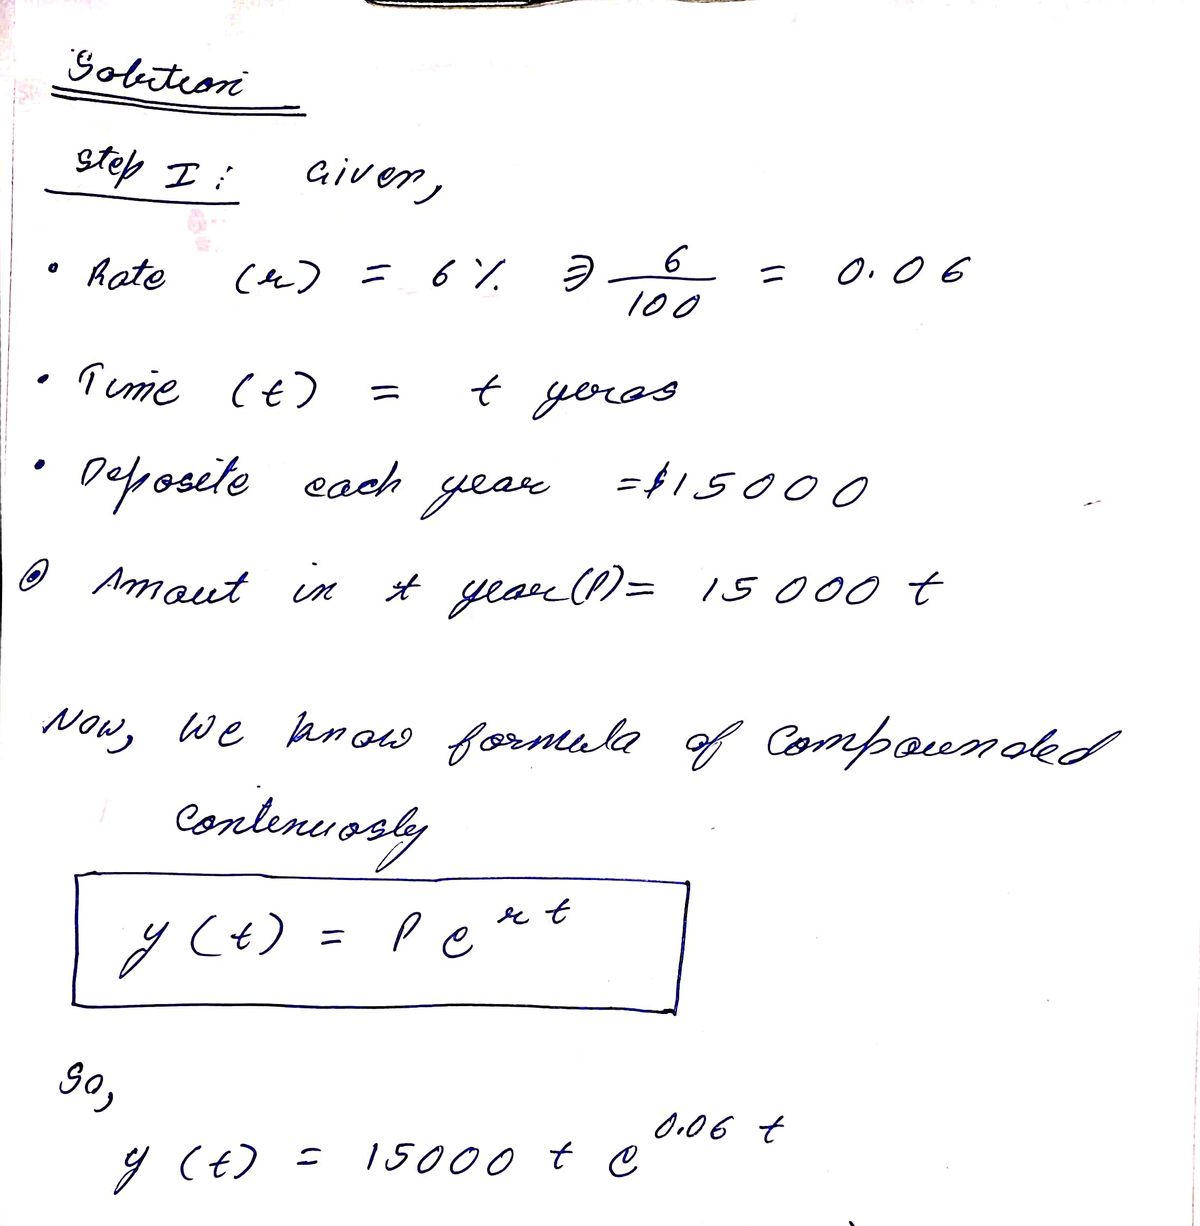 Solution
Step I: Given,
• Rate (r) = 6% ⇒ 6/100 = 0.06
• Time (t) = t yeras
• Deposite each year = $15000
⊙ Amout in t year (P) = 15000 t
Now, we know formula of compounded
continuosly
y(t) = P e^{rt}
So,
y(t) = 15000 t e^{0.06 t}